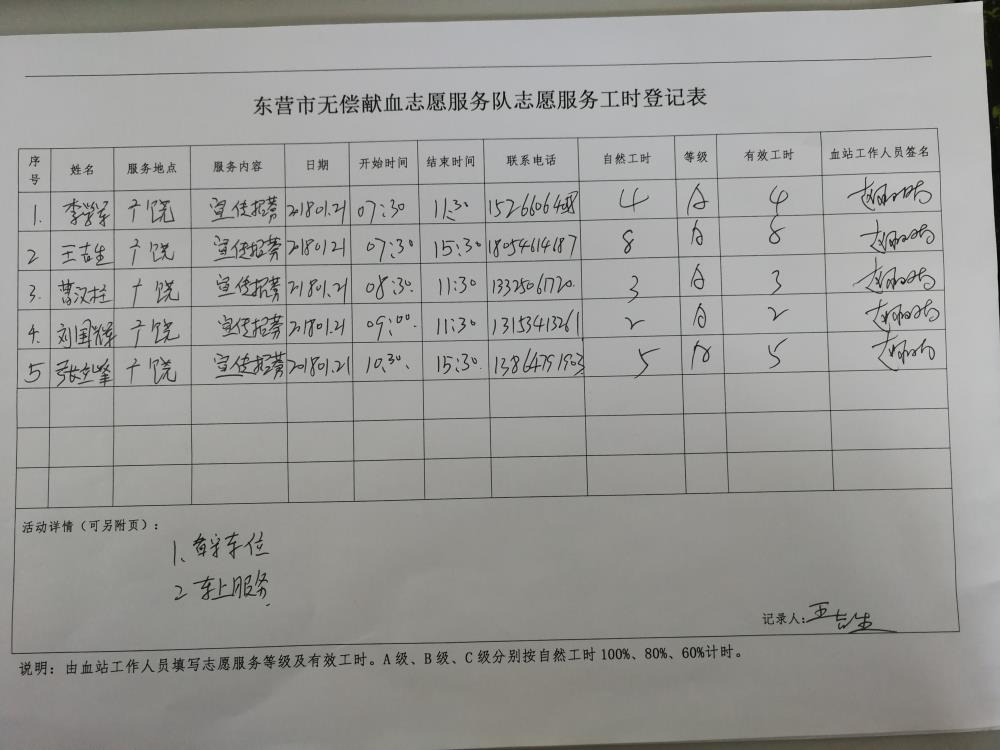 东营市无偿献血志愿服务队志愿服务工时登记表
序号 姓名 服务地点 服务内容 日期 开始时间 结束时间 联系电话 自然工时 等级 有效工时 血站工作人员签名
1. 李学军 广饶 宣传招募 2018.01.21 07:30 11:30 15266064 4 A 4
2 王吉生 广饶 宣传招募 2018.01.21 07:30 15:30 18054614187 8 A 8
3. 曹汉柱 广饶 宣传招募 2018.01.21 08:30. 11:30 13325061720. 3 A 3
4. 刘国辉 广饶 宣传招募 2018.01.21 09:00. 11:30 13153413261 2 A 2
5 张 峰 广饶 宣传招募 2018.01.21 10:30. 15:30 13864751903 5 A 5
活动详情（可另附页）：
1、 车位
2 车上服务.
记录人：王吉生
说明：由血站工作人员填写志愿服务等级及有效工时。A 级、B 级、C 级分别按自然工时 100%、80%、60%计时。